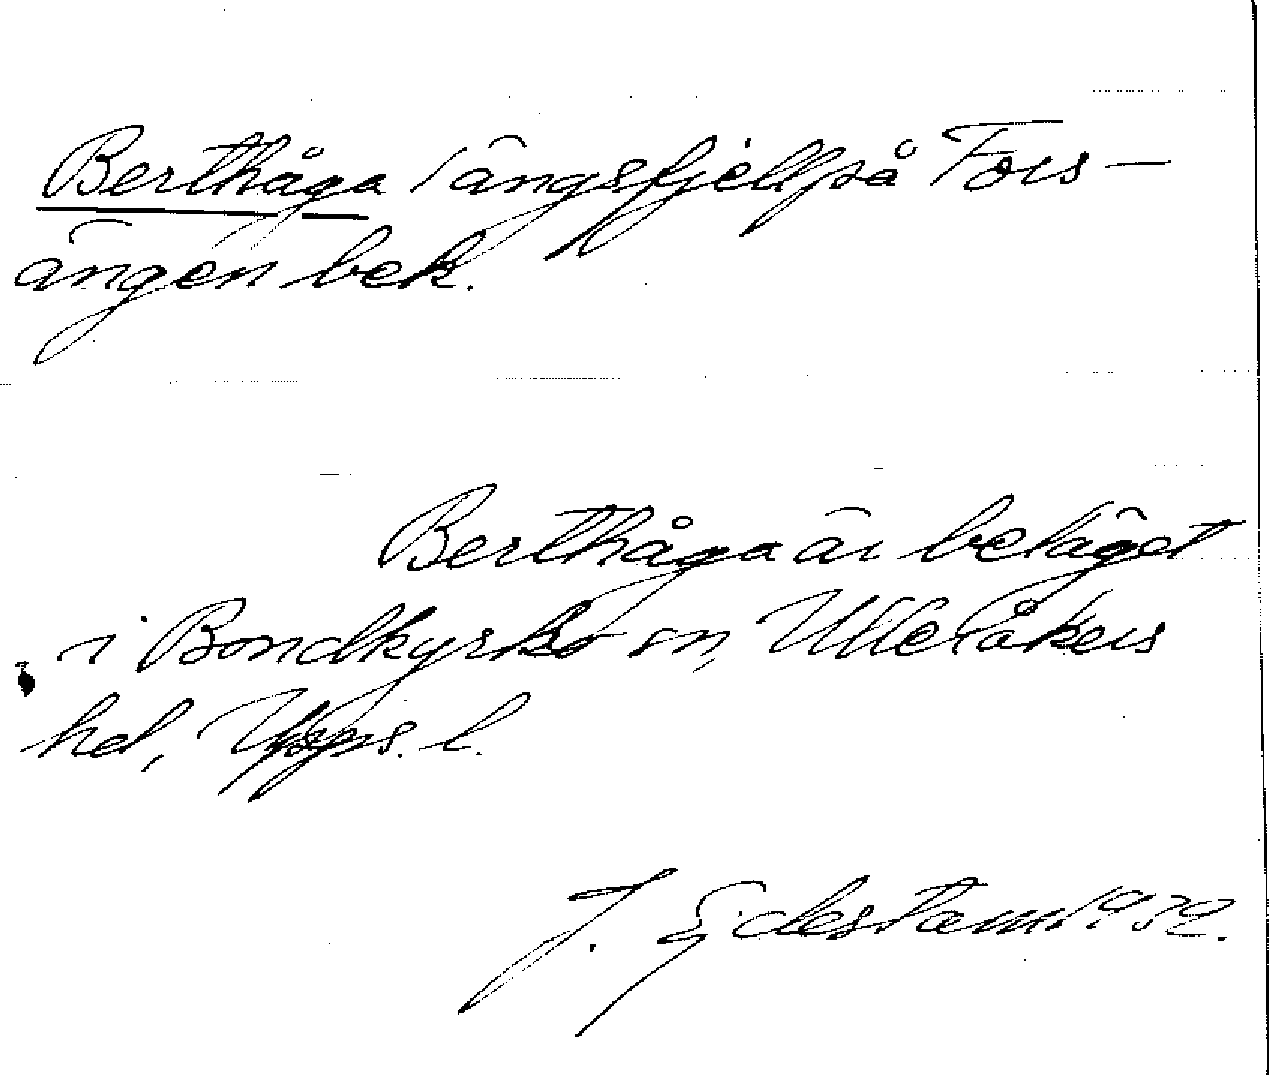 Berthåga / ängsfjell på Fors-
ängen bek.
Berthåga är beläget
i Bondkyrko sn, Ulleråkers
hd, Upps. l.
J. Ejdestam 1932.